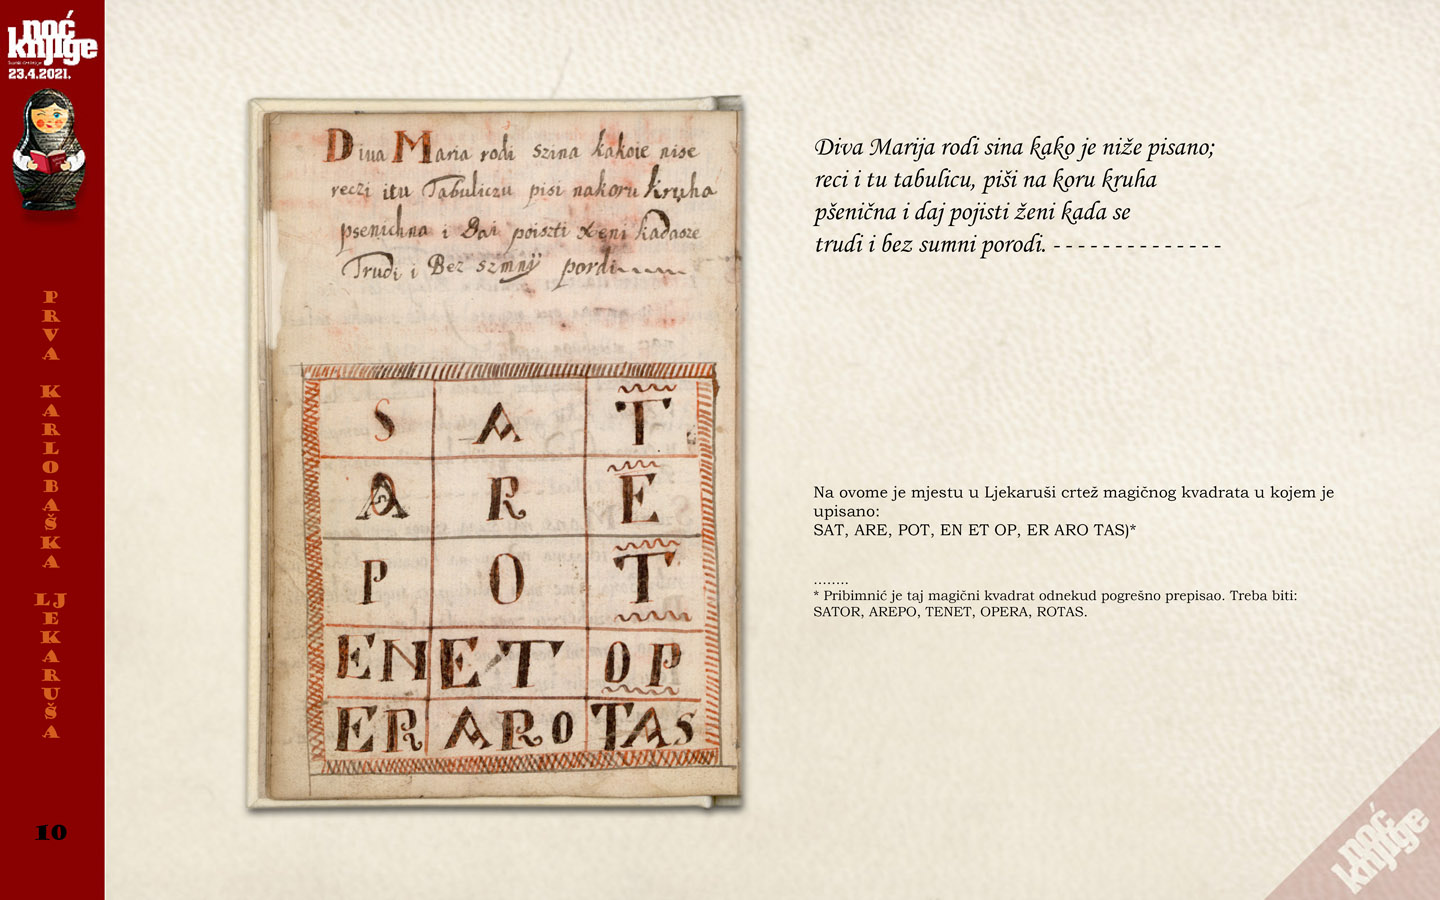 noć
knjige
23.4.2021.
PRVA KARLOBAŠKA LJEKARUŠA
10
Diua Maria rodi szina kakoie nise
reczi itu Tabuliczu pisi nakoru kruha
psenichna i Dai poiszti xeni kadasze
Trudi i Bez szmnÿ pordi
S A T
A R E
P O T
EN ET OP
ER ARO TAS
Diva Marija rodi sina kako je niže pisano;
reci i tu tabulicu, piši na koru kruha
pšenična i daj pojisti ženi kada se
trudi i bez sumni porodi. - - - - - - - - - - - - - -
Na ovome je mjestu u Ljekaruši crtež magičnog kvadrata u kojem je
upisano:
SAT, ARE, POT, EN ET OP, ER ARO TAS)*
........
* Pribimnić je taj magični kvadrat odnekud pogrešno prepisao. Treba biti:
SATOR, AREPO, TENET, OPERA, ROTAS.
noć
knjige